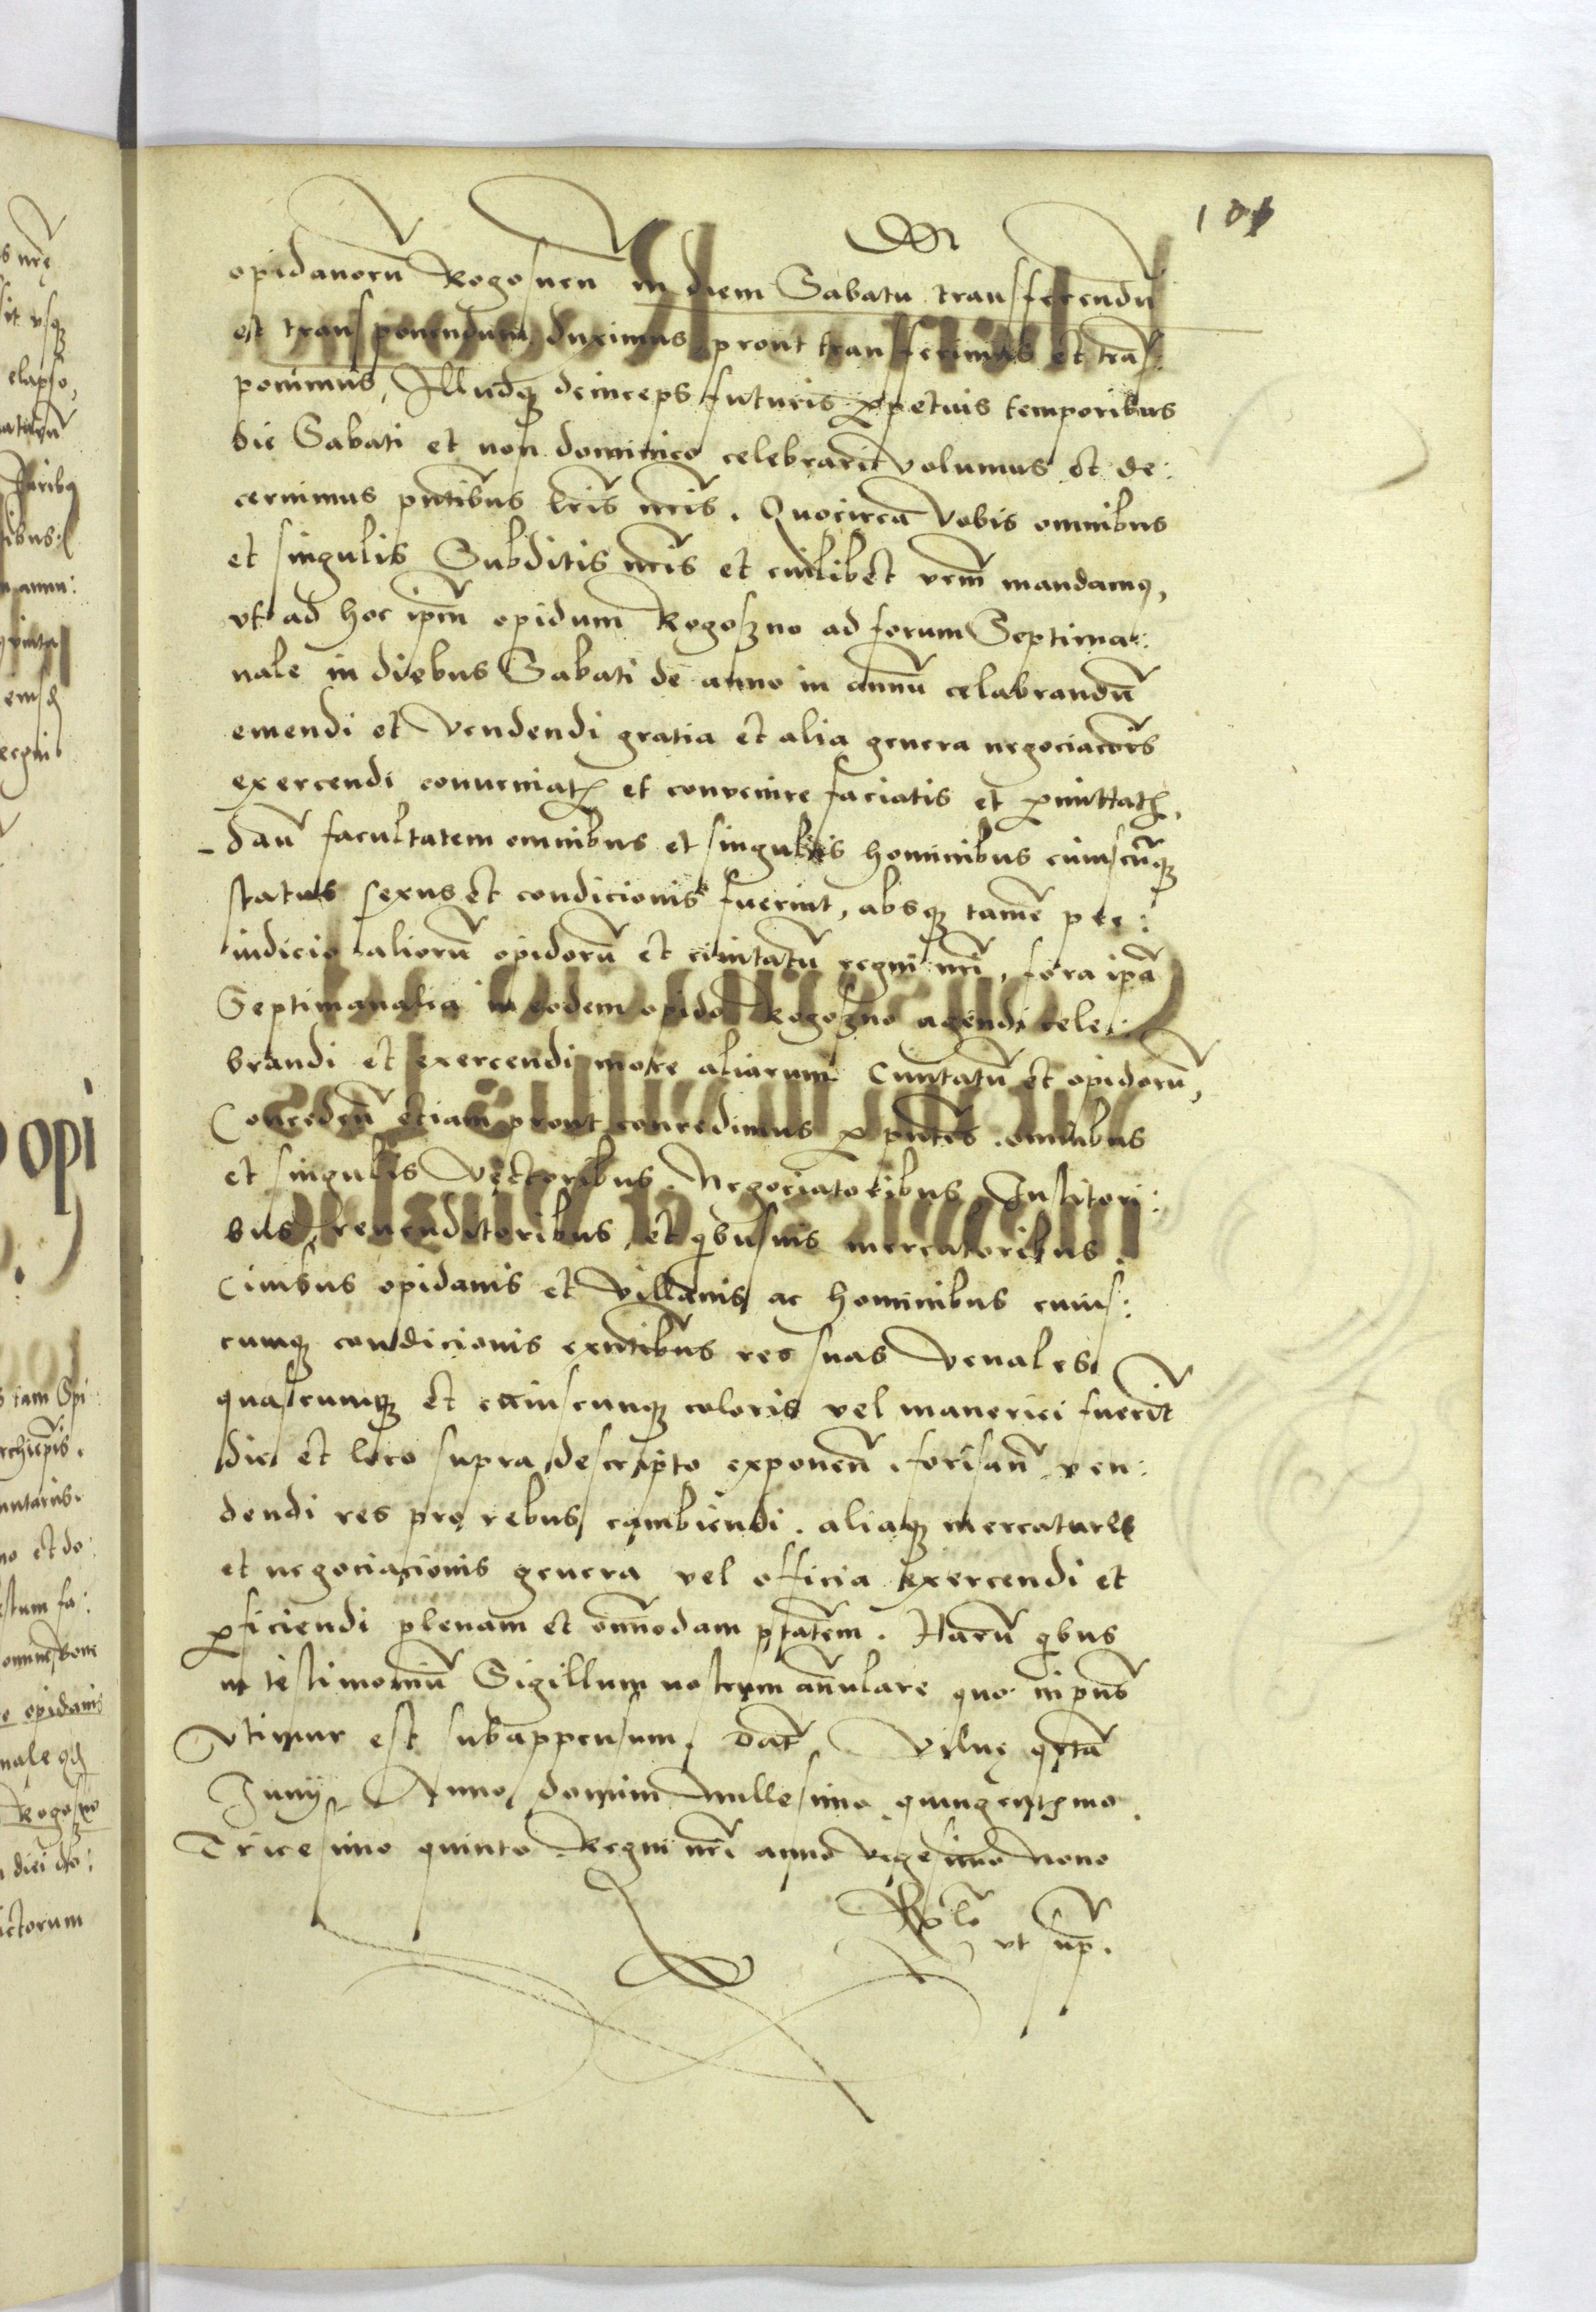 101
opidanorū Rogosnen in diem Sabatu transferendū
et transponendum duximus prout transferimus et trās:
ponimus, Illudq̃ deinceps futuris ꝑpetuis temporibus
die Sabati et non dominico celebrari volumus et de:
cernimus pntibus lr̃is nr̃is. Quocirca vobis omnibus
et singulis Subditis nr̃is et cuilibet vr̃m mandamus,
vt ad hoc ipm̃ opidum Rogoszno ad forum Septima:
nale in diebus Sabati de anno in annū celabrandū
emendi et vendendi gratia et alia genera negociacōis
exercendi conueniatis et convenire faciatis et ꝑmittatis,
- dan̄ facultatem omnibus et singulis hominibus cuiuscūq̃
status sexus et condicionis fuerint, absq̃ tamē pre:
iudicio aliorū opidorū et ciuitatū regni nr̃i, fora ipā
Septimanalia in eodem opido Rogoszno agendi cele:
brandi et exercendi more aliarum Ciuitatū et opidorū,
Conceden̄ etiam prout concedimus ꝑ pñtes. omnibus
et singulis vectoribus. Negociatoribus Institori:
bus, reuenditoribus, et qibusuis mercatoribus.
Ciuibus opidanis et villanis ac hominibus cuius:
cumq̃ condicionis exn̄tibus res suas venales
quascumq̃ et cuiuscunq̃ coloris vel maneriei fuerīt
die et loco supra descripto exponen̄. forisan̄ ven:
dendi res pro rebus cambiendi. aliaq̃ mercature
et negociacionis genera vel officia exercendi et
ꝑficiendi plenam et om̄imodam ptātem. Harū qibus
in testimoniū Sigillum nostrum an̄ulare quo in pn̄s
vtimur est subappensum. Dat̃ Vilnę qrta
Iunij Anno domini millesimo quingentesimo
Tricesimo quinto Regni nr̃i anno vigesimo nono
Rlo
ut sup̄.
opi